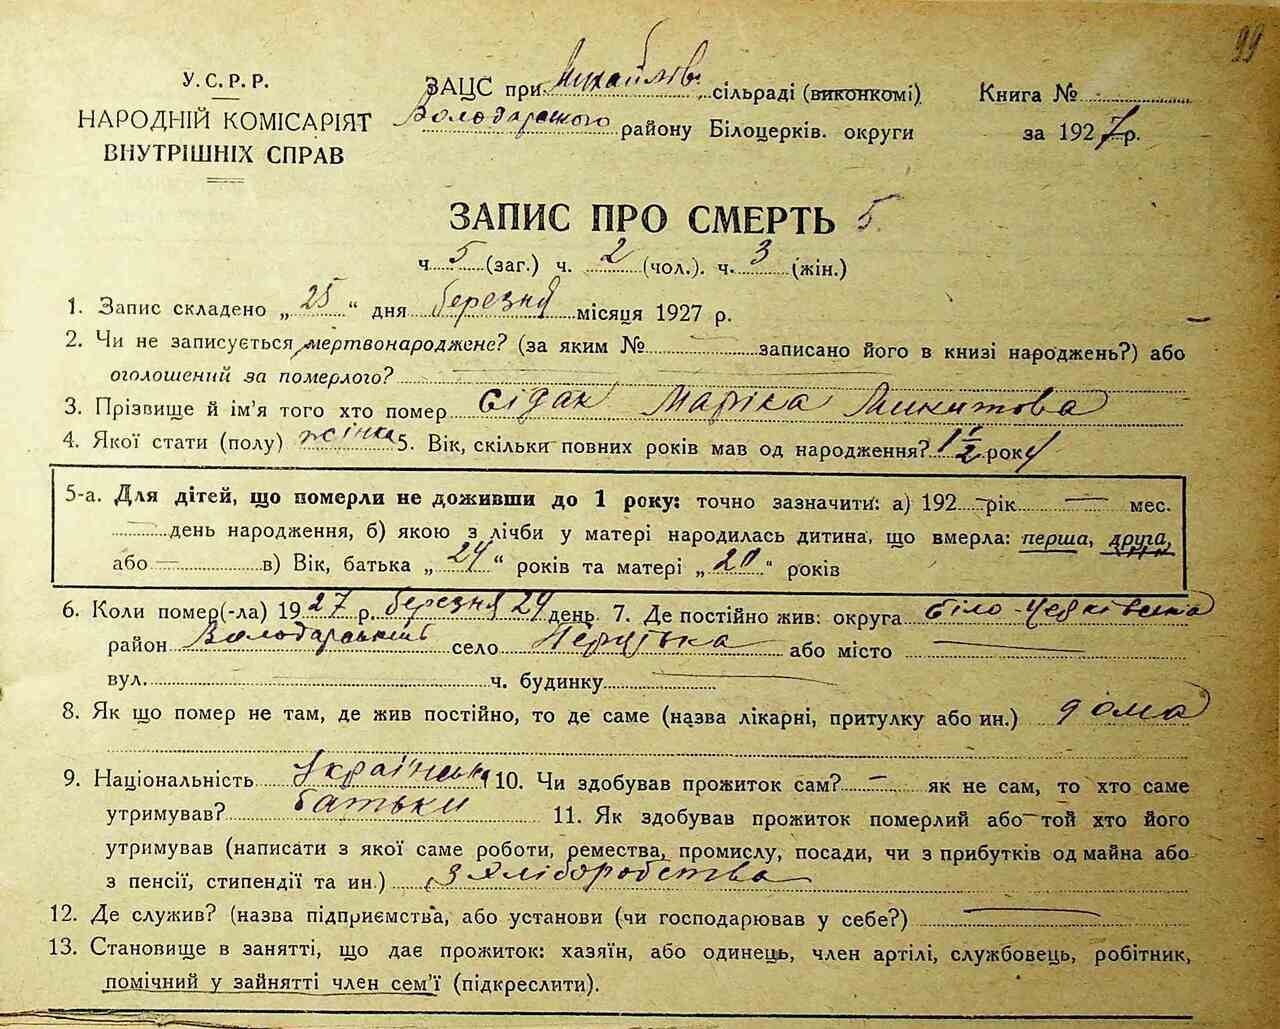 99
У.С.Р.Р.
НАРОДНІЙ КОМІСАРІЯТ
ВНУТРІШНІХ СПРАВ
ЗАЦС при Михайлів. сільраді (виконкомі)
Володарського району Білоцерків. округи
Книга №
за 1927 р.
ЗАПИС ПРО СМЕРТЬ 5
ч. 5 (заг.) ч. 2 (чол.). ч. 3 (жін.)
1. Запис складено „25“ дня березня місяця 1927 р.
2. Чи не записується мертвонароджене? (за яким № записано його в книзі народжень?) або
оголошений за померлого?
3. Прізвище й ім'я того хто помер Сідак Маріка Микитова
4. Якої стати (полу) жінка 5. Вік, скільки повних років мав од народження? 1 1/2 року
5-а. Для дітей, що померли не доживши до 1 року: точно зазначити: а) 192 — рік — мес.
— день народження, б) якою з лічби у матері народилась дитина, що вмерла: перша, друга,
або — в) Вік, батька „24“ років та матері „20“ років
6. Коли помер(-ла) 1927 р. березня 24 день. 7. Де постійно жив: округа Біло-Церківська
район Володарський село або місто —
вул. — ч. будинку —
8. Як що помер не там, де жив постійно, то де саме (назва лікарні, притулку або ин.) дома
9. Національність Українська 10. Чи здобував прожиток сам? — як не сам, то хто саме
утримував? батьки 11. Як здобував прожиток померлий або той хто його
утримував (написати з якої саме роботи, ремества, промислу, посади, чи з прибутків од майна або
з пенсії, стипендії та ин.) З хліборобства
12. Де служив? (назва підприємства, або установи (чи господарював у себе?) —
13. Становище в занятті, що дає прожиток: хазяїн, або одинець, член артілі, службовець, робітник,
помічний у зайнятті член сем'ї (підкреслити).